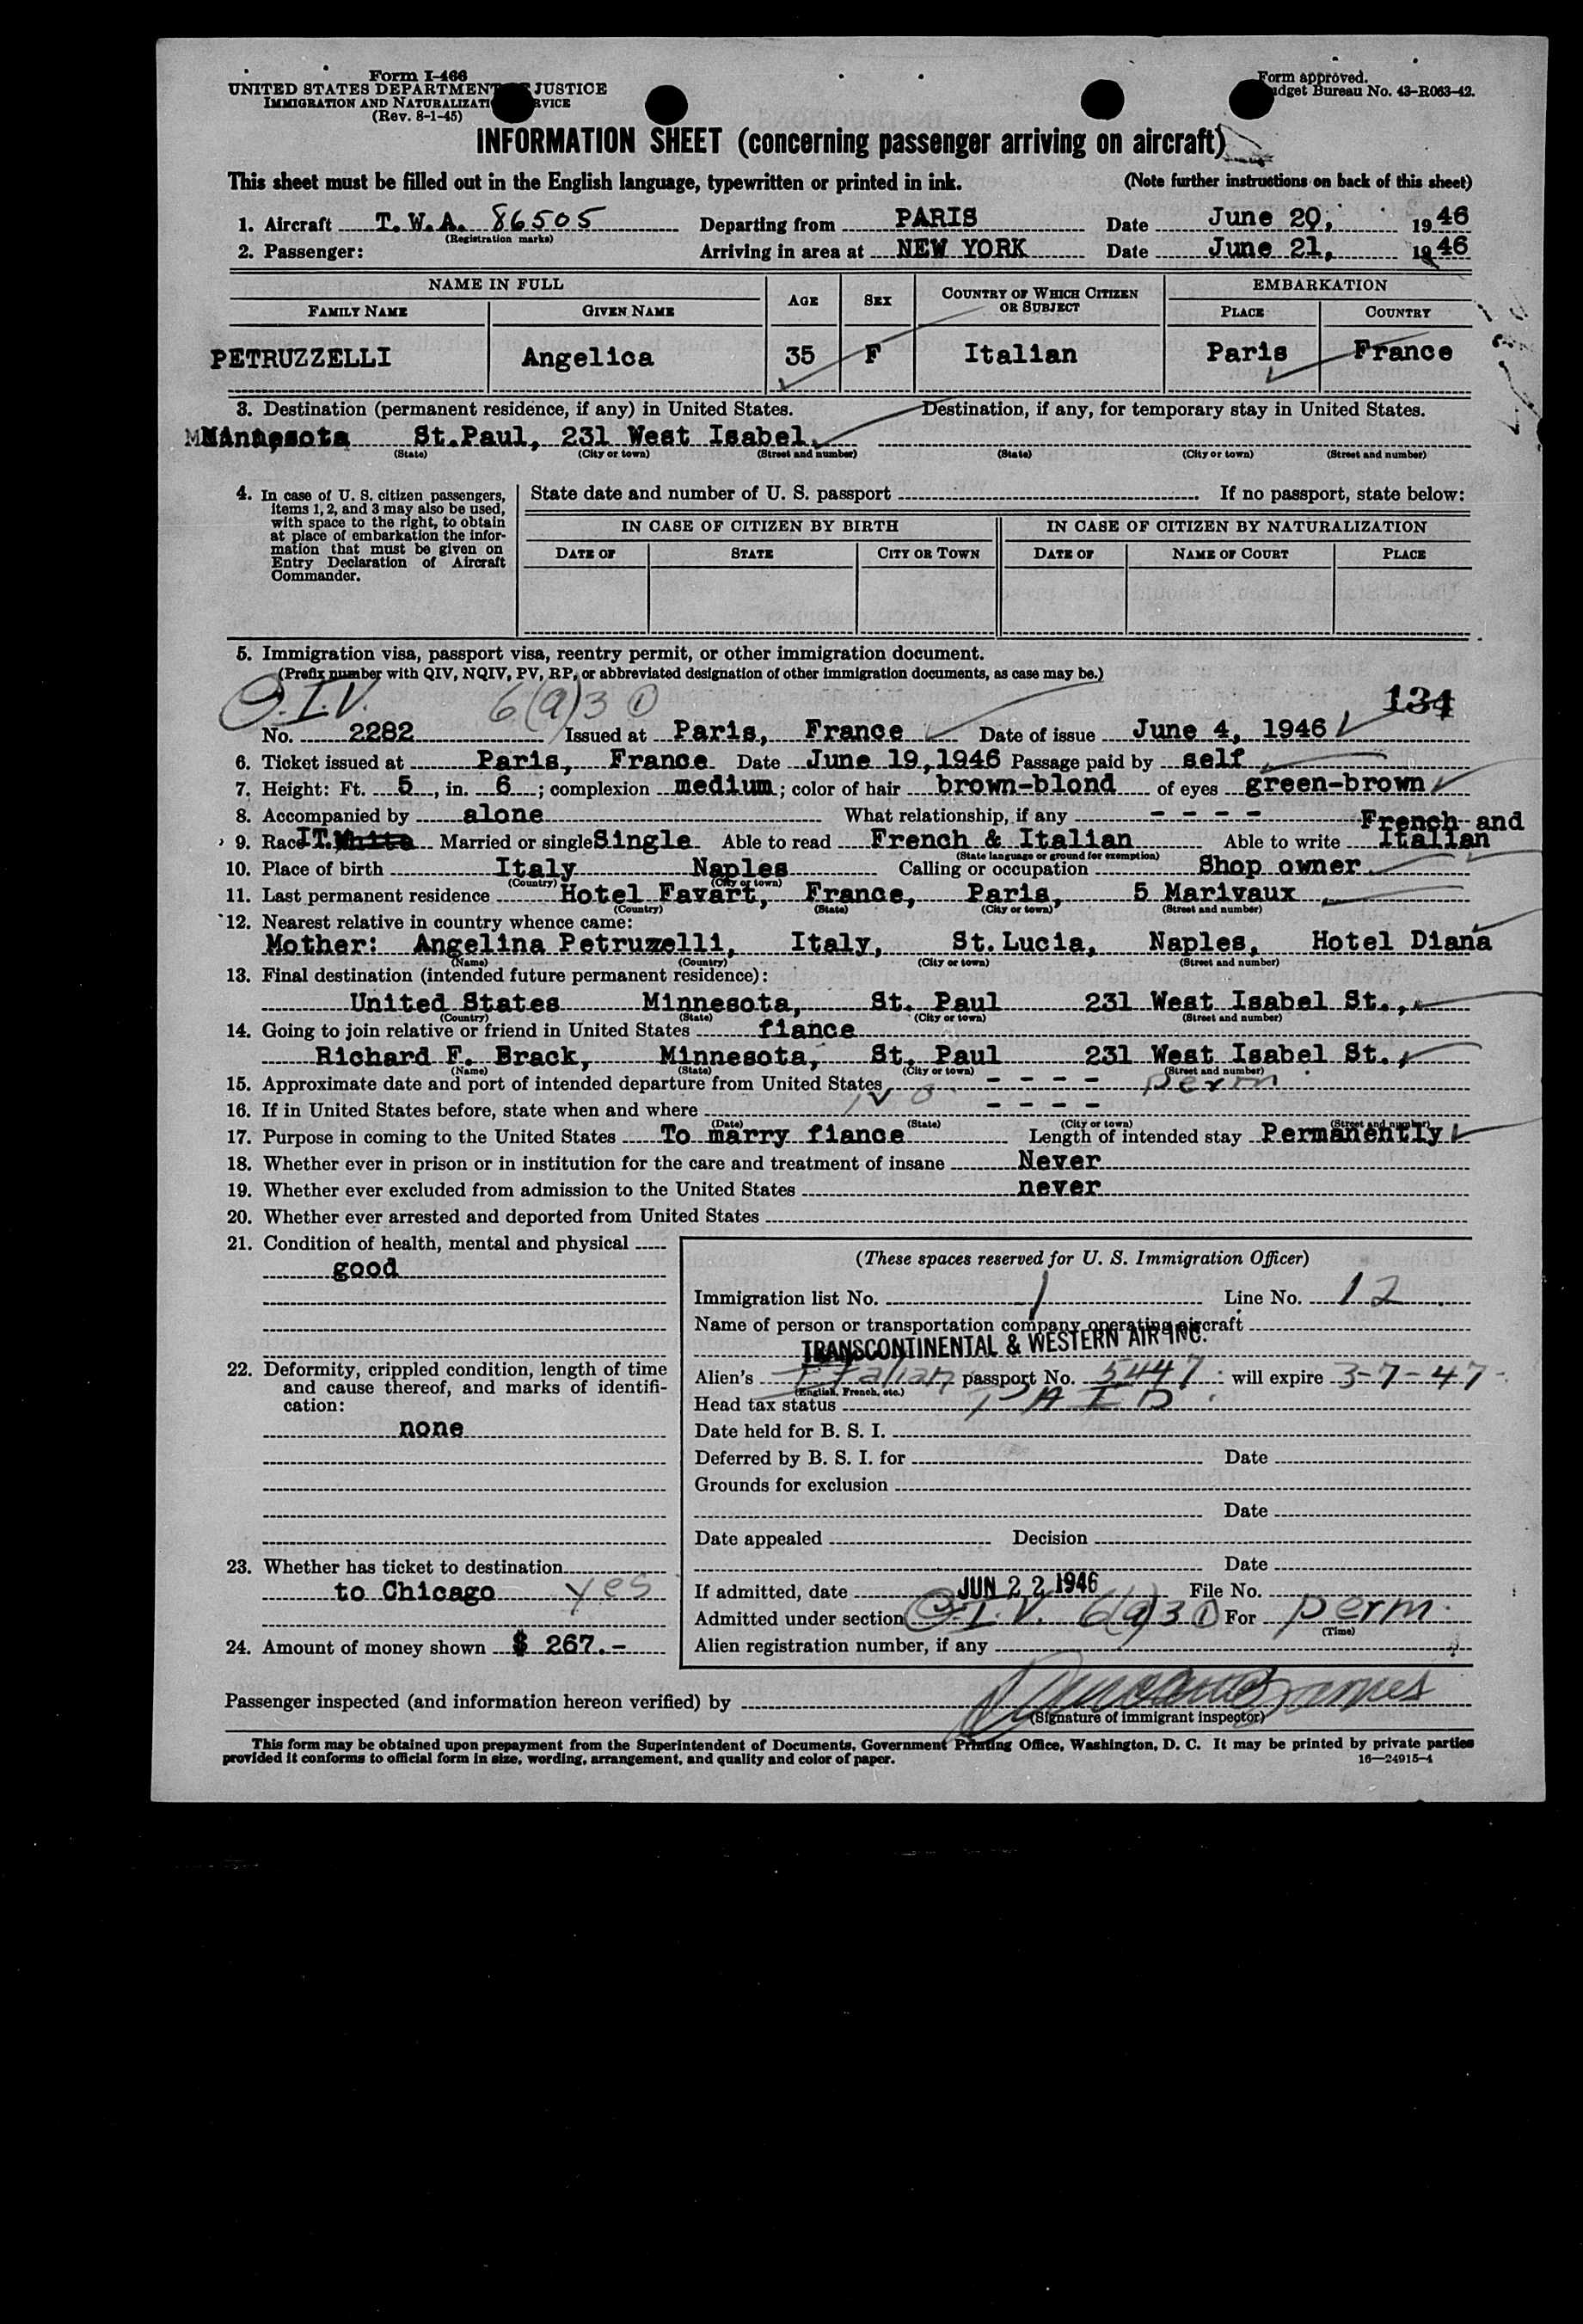 Form I-466
UNITED STATES DEPARTMENT JUSTICE
IMMIGRATION AND NATURALIZATI RVICE
(Rev. 8-1-45)
Form approved.
dget Bureau No. 43-R063-42.
INFORMATION SHEET (concerning passenger arriving on aircraft)
This sheet must be filled out in the English language, typewritten or printed in ink. (Note further instructions on back of this sheet)
1. Aircraft T. W. A. 86505 Departing from PARIS Date June 20, 1946
(Registration marks)
2. Passenger: Arriving in area at NEW YORK Date June 21, 1946
NAME IN FULL AGE SEX COUNTRY OF WHICH CITIZEN OR SUBJECT EMBARKATION
FAMILY NAME GIVEN NAME PLACE COUNTRY
PETRUZZELLI Angelica 35 F Italian Paris France
3. Destination (permanent residence, if any) in United States. Destination, if any, for temporary stay in United States.
Minnesota St.Paul, 231 West Isabel
(State) (City or town) (Street and number) (State) (City or town) (Street and number)
4. In case of U. S. citizen passengers, items 1, 2, and 3 may also be used, with space to the right, to obtain at place of embarkation the information that must be given on Entry Declaration of Aircraft Commander.
State date and number of U. S. passport If no passport, state below:
IN CASE OF CITIZEN BY BIRTH IN CASE OF CITIZEN BY NATURALIZATION
DATE OF STATE CITY OR TOWN DATE OF NAME OF COURT PLACE
5. Immigration visa, passport visa, reentry permit, or other immigration document.
(Prefix number with QIV, NQIV, PV, RP, or abbreviated designation of other immigration documents, as case may be.)
Q.I.V. 6(a)3 ① 134
No. 2282 Issued at Paris, France Date of issue June 4, 1946
6. Ticket issued at Paris, France Date June 19,1946 Passage paid by self
7. Height: Ft. 5, in. 6; complexion medium; color of hair brown-blond of eyes green-brown
8. Accompanied by alone What relationship, if any - - - -
French and
9. Race IT. White Married or single Single Able to read French & Italian Able to write Italian
(State language or ground for exemption)
10. Place of birth Italy Naples Calling or occupation Shop owner
(Country) (City or town)
11. Last permanent residence Hotel Favart, France, Paris, 5 Marivaux
(Country) (State) (City or town) (Street and number)
12. Nearest relative in country whence came:
Mother: Angelina Petruzelli, Italy, St.Lucia, Naples, Hotel Diana
(Name) (Country) (City or town) (Street and number)
13. Final destination (intended future permanent residence):
United States Minnesota, St. Paul 231 West Isabel St.,
(Country) (State) (City or town) (Street and number)
14. Going to join relative or friend in United States fiance
Richard F. Brack, Minnesota, St. Paul 231 West Isabel St.,
(Name) (State) (City or town) (Street and number)
15. Approximate date and port of intended departure from United States - - - - perm
16. If in United States before, state when and where no - - - -
(Date) (State) (City or town) (Street and number)
17. Purpose in coming to the United States To marry fiance Length of intended stay Permanently
18. Whether ever in prison or in institution for the care and treatment of insane Never
19. Whether ever excluded from admission to the United States never
20. Whether ever arrested and deported from United States
21. Condition of health, mental and physical
good
22. Deformity, crippled condition, length of time and cause thereof, and marks of identification:
none
23. Whether has ticket to destination
to Chicago yes
24. Amount of money shown $ 267.-
(These spaces reserved for U. S. Immigration Officer)
Immigration list No. 1 Line No. 12
Name of person or transportation company operating aircraft
TRANSCONTINENTAL & WESTERN AIR INC.
Alien's Italian passport No. 5447 will expire 3-7-47
(English, French, etc.)
Head tax status PAID
Date held for B. S. I.
Deferred by B. S. I. for Date
Grounds for exclusion
Date
Date appealed Decision
Date
If admitted, date JUN 22 1946 File No.
Admitted under section Q.I.V. 6(a)3 ① For perm.
(Time)
Alien registration number, if any
Passenger inspected (and information hereon verified) by
(Signature of immigrant inspector)
This form may be obtained upon prepayment from the Superintendent of Documents, Government Printing Office, Washington, D. C. It may be printed by private parties
provided it conforms to official form in size, wording, arrangement, and quality and color of paper. 16—24915-4